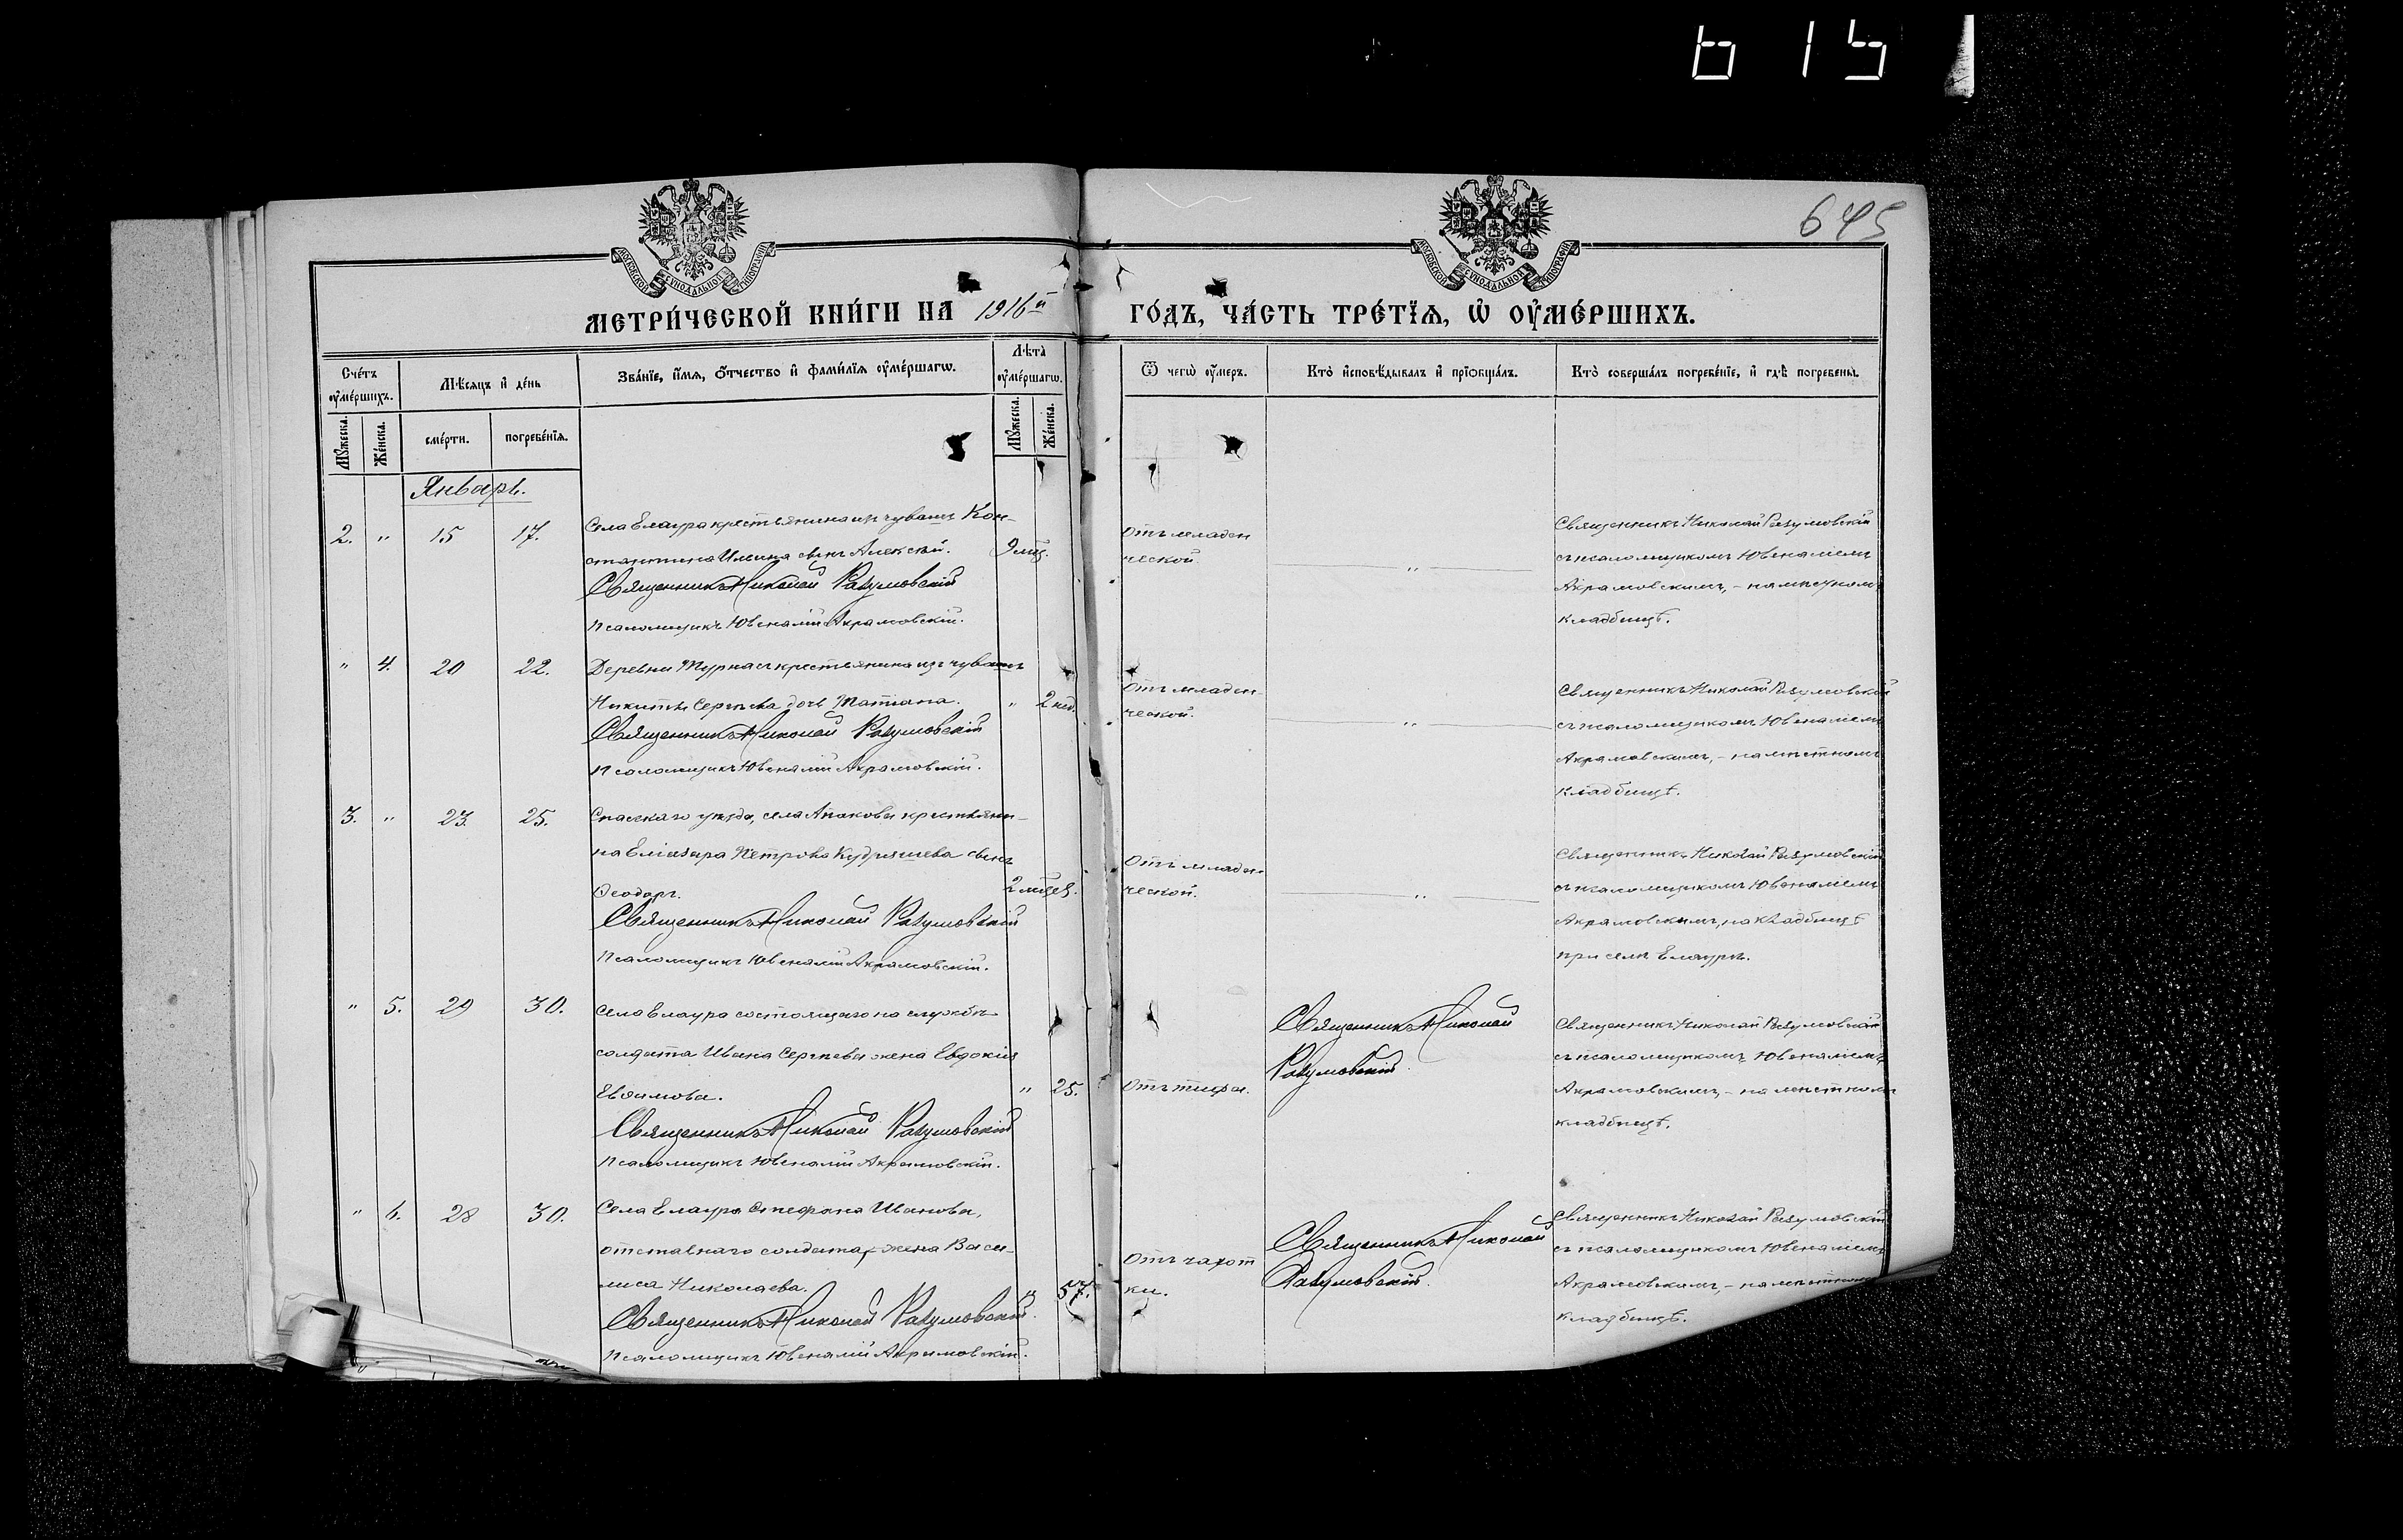 615
645
МОСКОВСКОЙ СѴНОДАЛЬНОЙ ТИПОГРАФІИ
МОСКОВСКОЙ СѴНОДАЛЬНОЙ ТИПОГРАФІИ
МЕТРИ́ЧЕСКОЙ КНИ́ГИ НА 1916й ГО́ДЪ, ЧА́СТЬ ТРЕ́ТЇѦ, Ѡ҆ ОУ҆МЕ́РШИХЪ.
Сче́тъ оу҆ме́ршихъ.
Мѣ́сѧцъ и҆ де́нь
Зва́нїе, и҆́мѧ, ѻ҆́тчество и҆ фами́лїѧ оу҆ме́ршагѡ.
Лѣ́та оу҆ме́ршагѡ.
Ѿ чегѡ̀ оу҆́меръ.
Кто̀ и҆сповѣ́дывалъ и҆ прїѡбща́лъ.
Кто̀ соверша́лъ погребе́нїе, и҆ гдѣ̀ погребены̀.
Мꙋ́жеска.
Же́нска.
сме́рти.
погребе́нїѧ.
Мꙋ́жеска.
Же́нска.
Январь.
2. " 15 17.
Села Елаура крестьянина изъ чувашъ Кон-
стантина Ильина сынъ Алексѣй.
9 мѣс.
Священникъ Николай Разумовскій
Псаломщикъ Ювеналій Акрамовскій.
Отъ младен
ческой.
"
Священникъ Николай Разумовскій
съ псаломщикомъ Ювеналіемъ
Акрамовскимъ, - на мѣстномъ
кладбищѣ.
" 4. 20 22.
Деревни Турнасъ крестьянина изъ чувашъ
Никиты Сергѣева дочь Татіана.
" 2 нед.
Священникъ Николай Разумовскій
Псаломщикъ Ювеналій Акрамовскій.
Отъ младен-
ческой.
"
Священникъ Николай Разумовскій
съ псаломщикомъ Ювеналіемъ
Акрамовскимъ, - на мѣстномъ
кладбищѣ.
3. " 23. 25.
Спасскаго уѣзда, села Апакова крестьяни-
на Еліазара Петрова Кудряшева сынъ
Ѳеодоръ.
2 мѣсяц.
Священникъ Николай Разумовскій
Псаломщикъ Ювеналій Акрамовскій.
Отъ младен
ческой.
"
Священникъ Николай Разумовскій
съ псаломщикомъ Ювеналіемъ
Акрамовскимъ, на кладбищѣ
при селѣ Елаурѣ.
" 5. 29 30.
Села Елаура состоящаго на службѣ
солдата Ивана Сергѣева жена Евдокія
Евѳимова.
" 25.
Священникъ Николай Разумовскій
Псаломщикъ Ювеналій Акрамовскій.
Отъ тифа.
Священникъ Николай
Разумовскій.
Священникъ Николай Разумовскій
съ псаломщикомъ Ювеналіемъ
Акрамовскимъ, - на мѣстномъ
кладбищѣ.
" 6. 28 30.
Села Елаура Стефана Иванова,
отставнаго солдата, жена Васи-
лиса Николаева.
" 57.
Священникъ Николай Разумовскій.
Псаломщикъ Ювеналій Акрамовскій.
Отъ чахот
ки.
Священникъ Николай
Разумовскій.
Священникъ Николай Разумовскій
съ псаломщикомъ Ювеналіемъ
Акрамовскимъ, - на мѣстномъ
кладбищѣ.